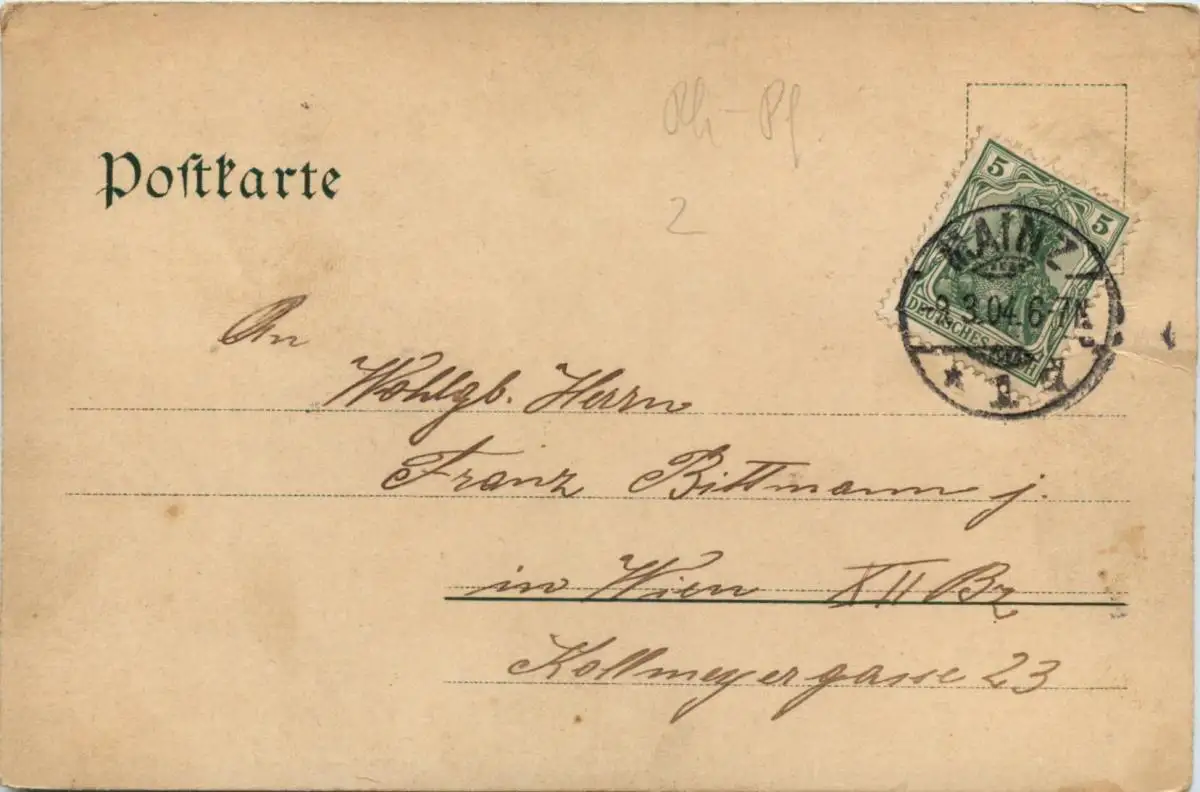 Postkarte
Rh-Pf.
2
5 5
DEUTSCHES REICH
MAINZ
3.04.6-7N
* 1
An
Wohlgb. Herrn
Franz Bittmann j.
in Wien XII Bz
Kollmeyergasse 23